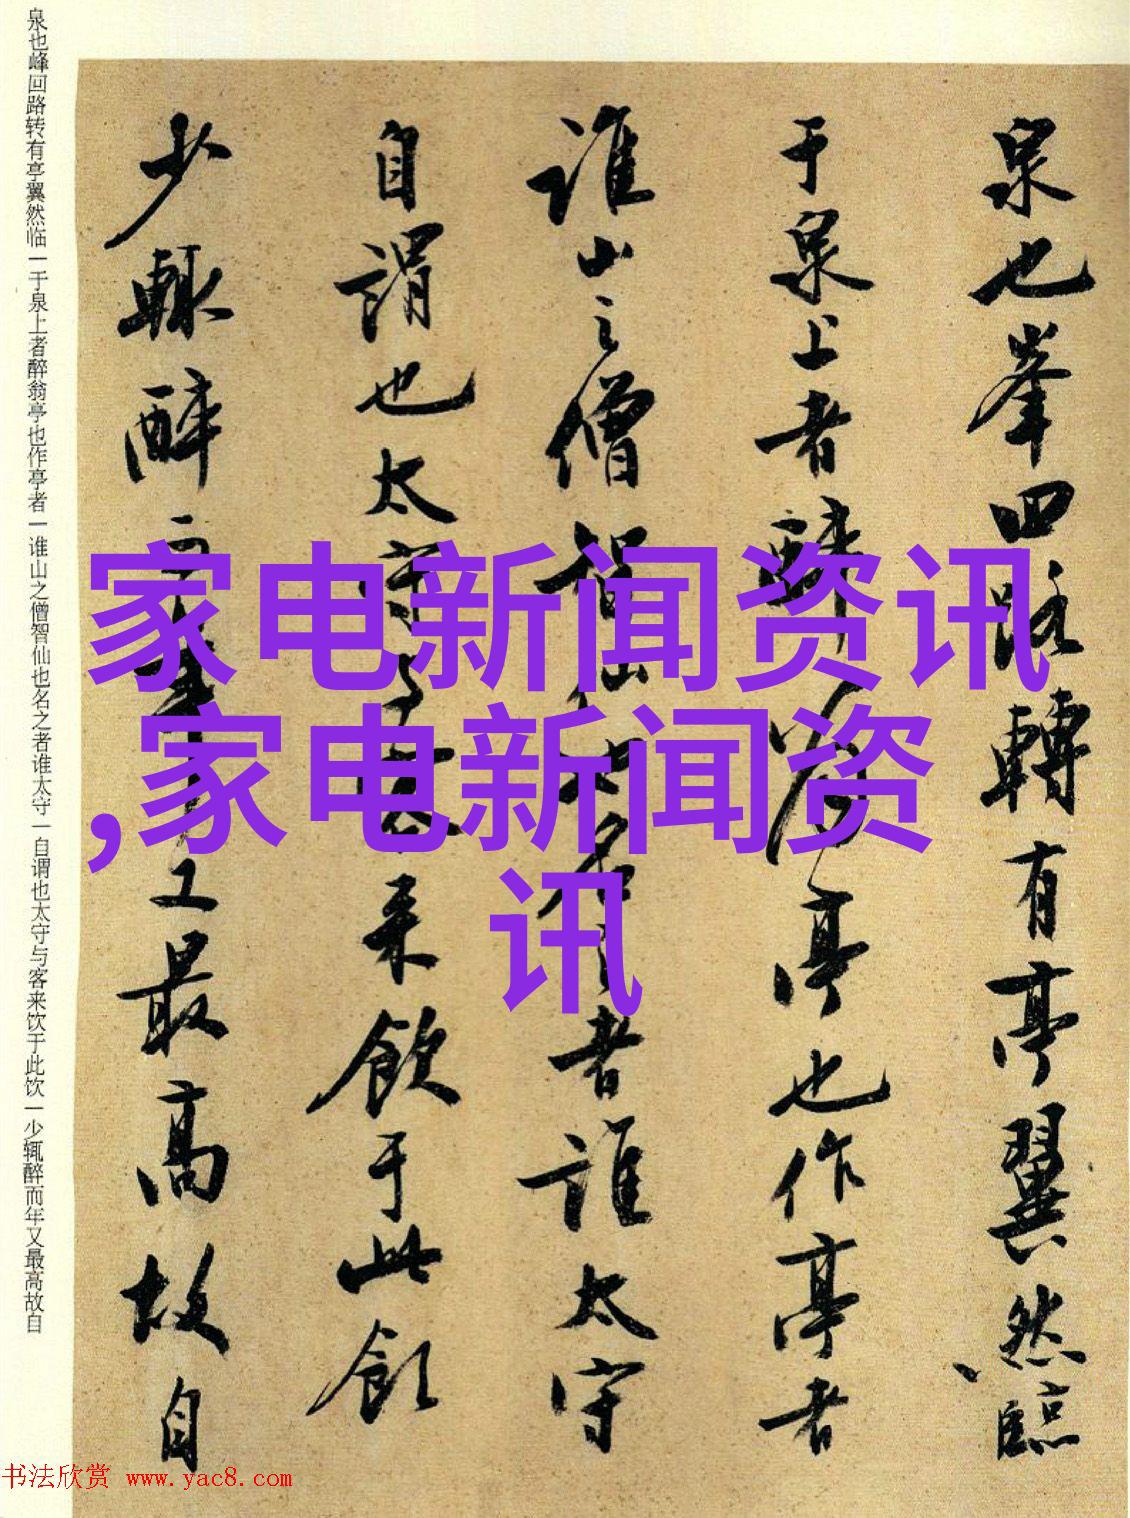 泉也峯回路轉有亭翼然臨
于泉上者醉翁亭也作亭者
誰山之僧智仙也名之者誰太守
自謂也太守与客来飲于此飲
少輒醉而年又最高故自
泉也峰回路转有亭翼然临一于泉上者醉翁亭也作亭者一谁山之僧智仙也名之者谁太守一自谓也太守与客来饮于此饮一少辄醉而年又最高故自
家电新闻资讯
,家电新闻资
讯
书法欣赏 www.yac8.com